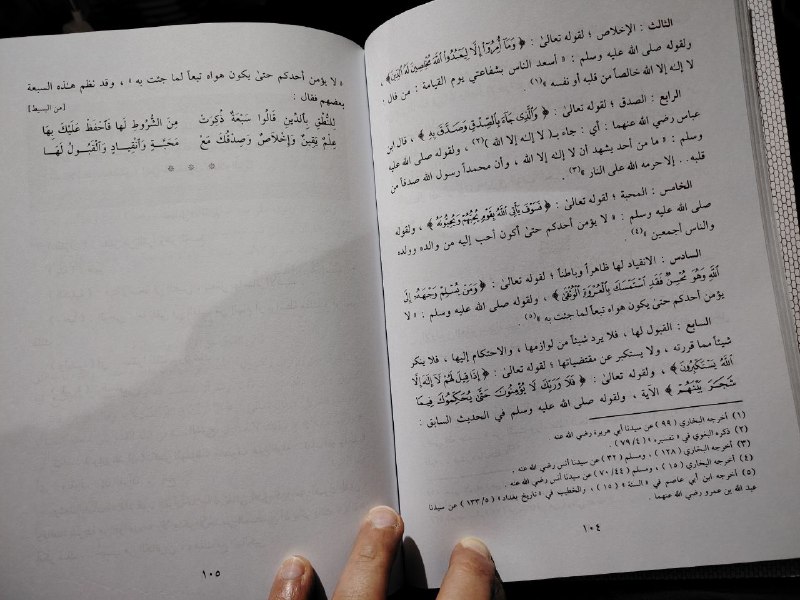 الثالث : الإخلاص ؛ لقوله تعالىٰ : ﴿ وَمَآ أُمِرُوٓا۟ إِلَّا لِيَعْبُدُوا۟ ٱللَّهَ مُخْلِصِينَ لَهُ ٱلدِّينَ ﴾ ،
ولقوله صلى الله عليه وسلم : « أسعد الناس بشفاعتي يوم القيامة : من قال :
لا إلـٰه إلا الله خالصاً من قلبه أو نفسه »(١) .
الرابع : الصدق ؛ لقوله تعالىٰ : ﴿ وَٱلَّذِى جَآءَ بِٱلصِّدْقِ وَصَدَّقَ بِهِۦ ﴾ ، قال ابن
عباس رضي الله عنهما : أي : جاء بـ( لا إلـٰه إلا الله )(٢) ، ولقوله صلى الله عليه
وسلم : « ما من أحد يشهد أن لا إلـٰه إلا الله ، وأن محمداً رسول الله صدقاً من
قلبه . . إلا حرمه الله على النار »(٣) .
الخامس : المحبة ؛ لقوله تعالىٰ : ﴿ فَسَوْفَ يَأْتِى ٱللَّهُ بِقَوْمٍ يُحِبُّهُمْ وَيُحِبُّونَهُۥٓ ﴾ ، ولقوله
صلى الله عليه وسلم : « لا يؤمن أحدكم حتىٰ أكون أحب إليه من والده وولده
والناس أجمعين »(٤) .
السادس : الانقياد لها ظاهراً وباطناً ؛ لقوله تعالىٰ : ﴿ وَمَن يُسْلِمْ وَجْهَهُۥٓ إِلَى
ٱللَّهِ وَهُوَ مُحْسِنٌ فَقَدِ ٱسْتَمْسَكَ بِٱلْعُرْوَةِ ٱلْوُثْقَىٰ ﴾ ، ولقوله صلى الله عليه وسلم : « لا
يؤمن أحدكم حتىٰ يكون هواه تبعاً لما جئت به »(٥) .
السابع : القبول لها ، فلا يرد شيئاً من لوازمها ، والاحتكام إليها ، فلا ينكر
شيئاً مما قررته ، ولا يستكبر عن مقتضياتها ؛ لقوله تعالىٰ : ﴿ إِذَا قِيلَ لَهُمْ لَآ إِلَـٰهَ إِلَّا
ٱللَّهُ يَسْتَكْبِرُونَ ﴾ ، ولقوله تعالىٰ : ﴿ فَلَا وَرَبِّكَ لَا يُؤْمِنُونَ حَتَّىٰ يُحَكِّمُوكَ فِيمَا
شَجَرَ بَيْنَهُمْ ﴾ الآية ، ولقوله صلى الله عليه وسلم في الحديث السابق :
(١) أخرجه البخاري ( ٩٩ ) عن سيدنا أبي هريرة رضي الله عنه .
(٢) ذكره البغوي في « تفسيره » ( ٧٩/٤ ) .
(٣) أخرجه البخاري ( ١٢٨ ) ، ومسلم ( ٣٢ ) عن سيدنا أنس رضي الله عنه .
(٤) أخرجه البخاري ( ١٥ ) ، ومسلم ( ٧٠/٤٤ ) عن سيدنا أنس رضي الله عنه .
(٥) أخرجه ابن أبي عاصم في « السنة » ( ١٥ ) ، والخطيب في « تاريخ بغداد » ( ١٣٣/٥ ) عن سيدنا
عبد الله بن عمرو رضي الله عنهما .
١٠٤
« لا يؤمن أحدكم حتىٰ يكون هواه تبعاً لما جئت به » ، وقد نظم هـٰذه السبعة
بعضهم فقال :
[من البسيط]
لِلنُّطْقِ بِٱلدِّينِ قَالُوا سَبْعَةٌ ذُكِرَتْ مِنَ الشُّرُوطِ لَها فَٱحْفَظْ عَلَيْكَ بِهَا
عِلْمٌ يَقِينٌ وَإِخْلَاصٌ وَصِدْقُكَ مَعْ مَحَبَّةٍ وَٱنْقِيَادٍ وَٱلْقَبُولُ لَهَـا
* * *
١٠٥